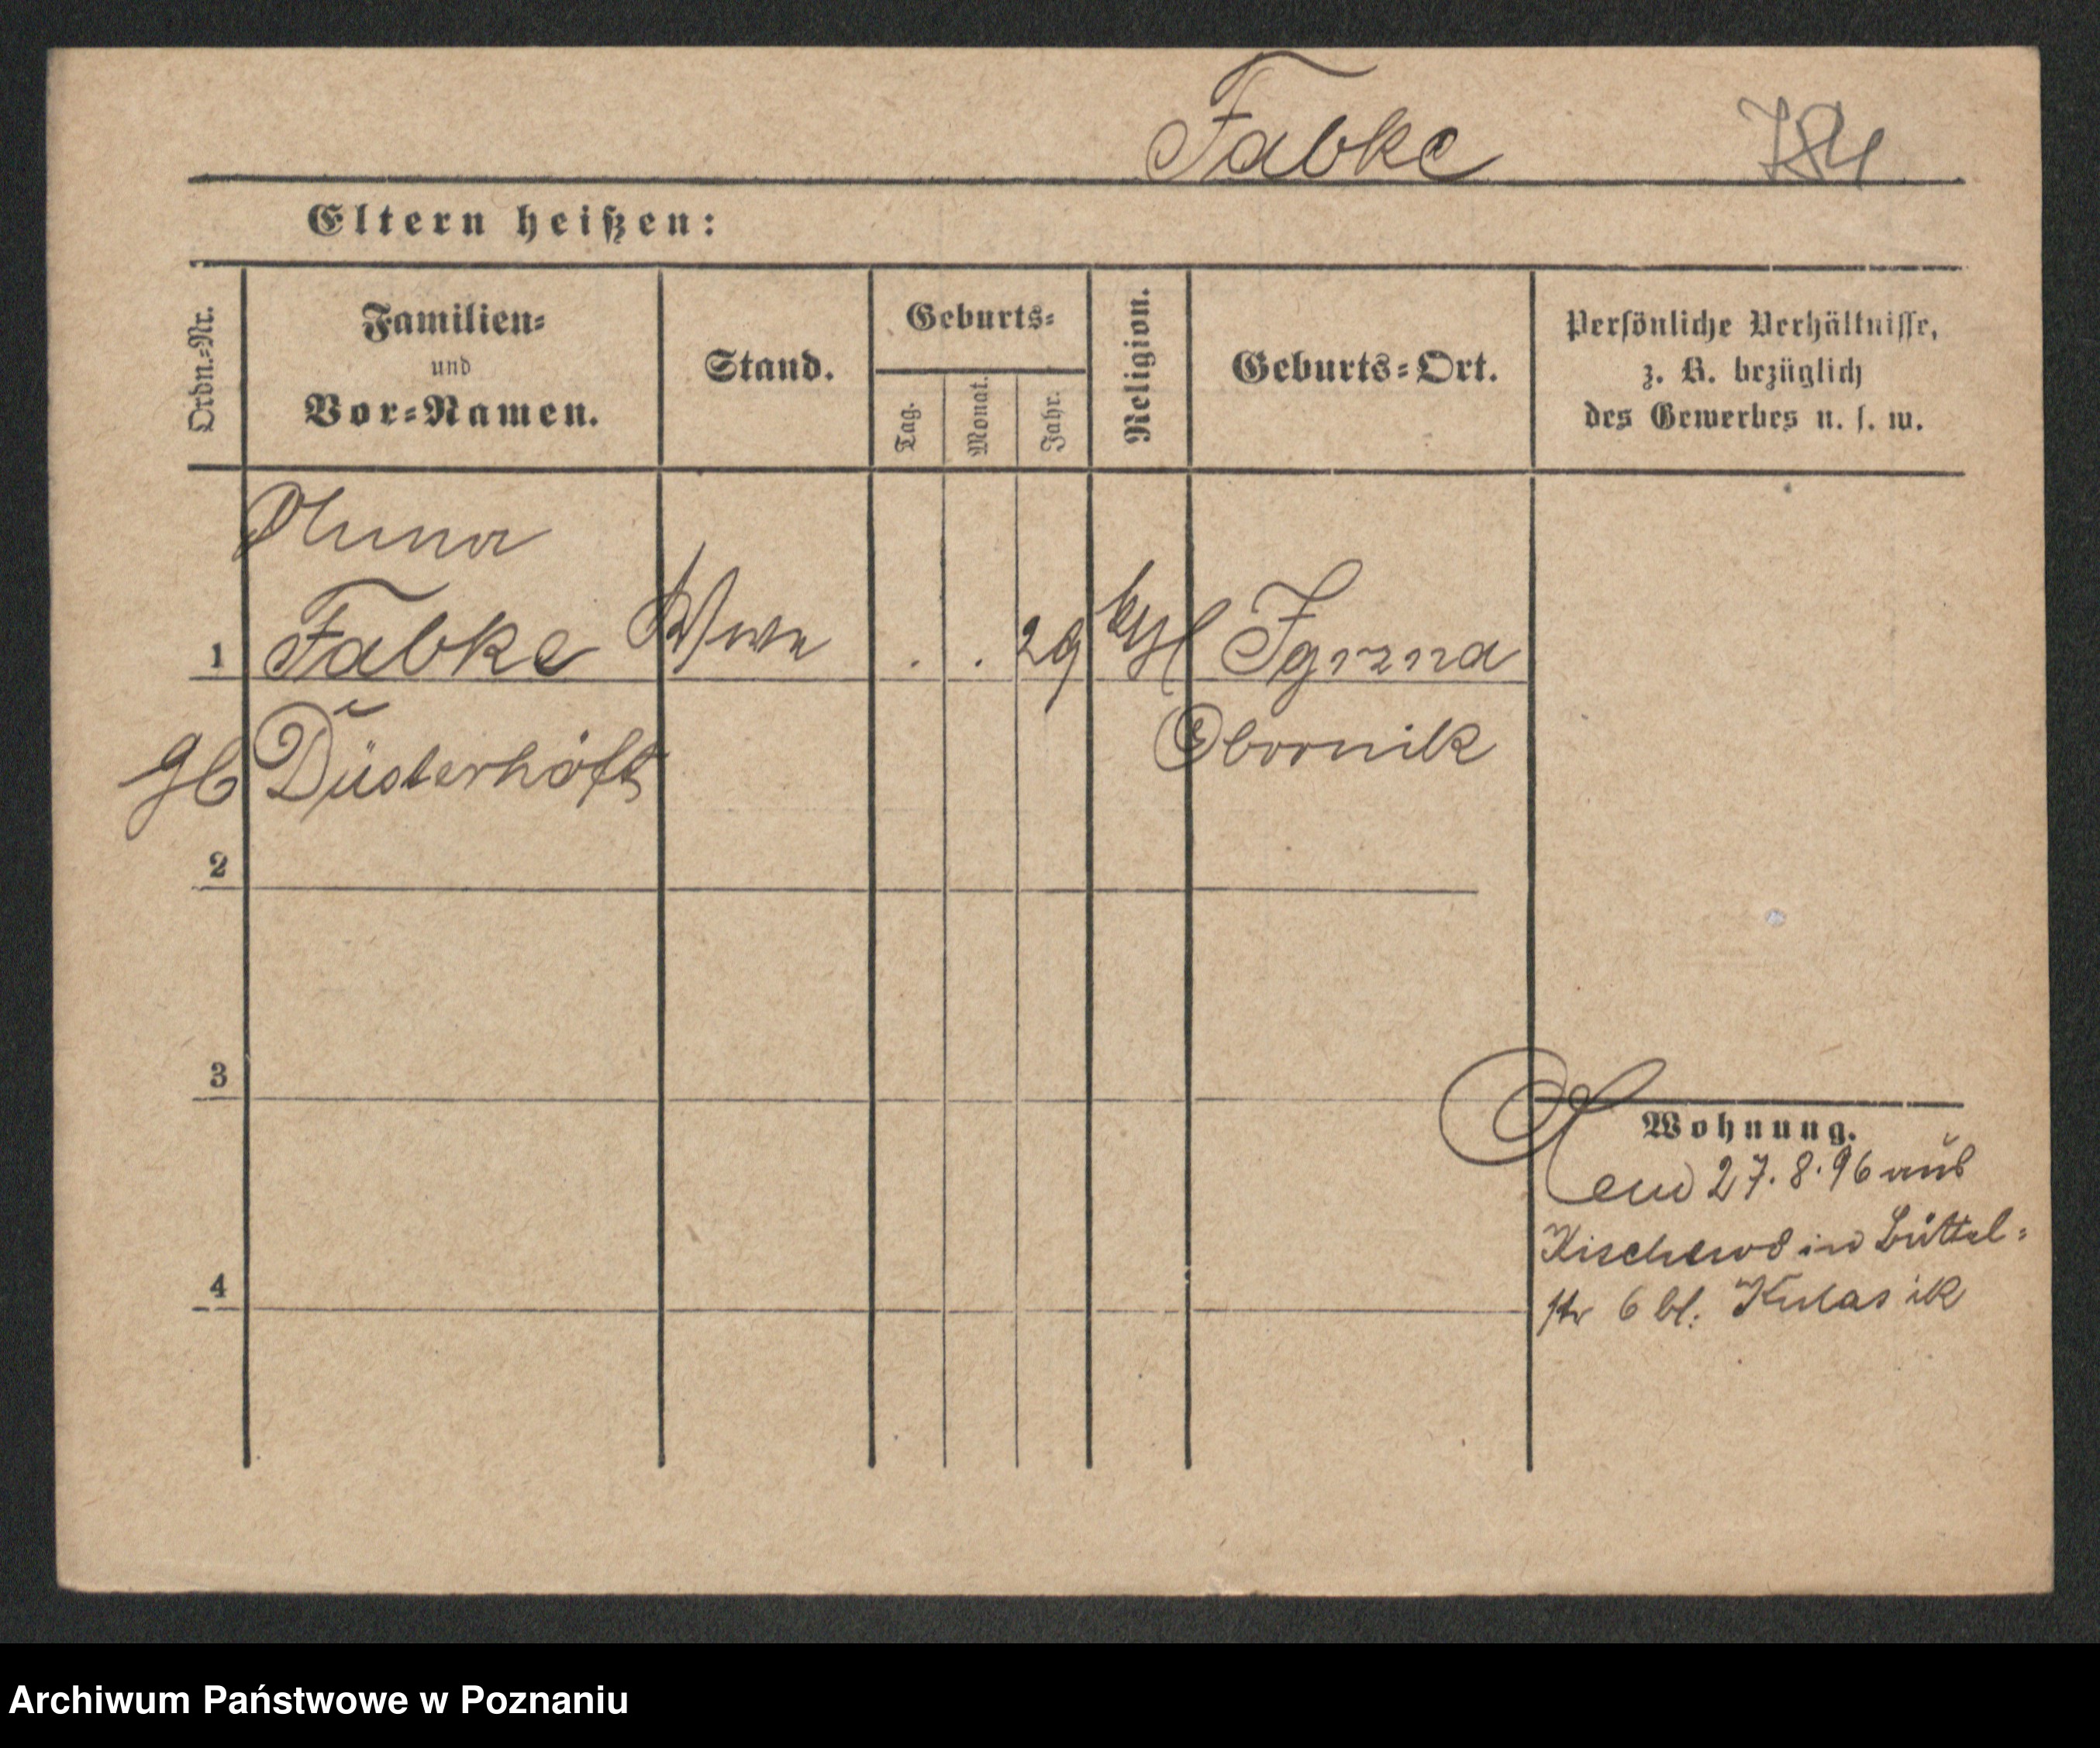 Fabke 784
Eltern heißen:
Ordn.-Nr.
Familien-
und
Vor-Namen.
Stand.
Geburts-
Tag.
Monat.
Jahr.
Religion.
Geburts-Ort.
Persönliche Verhältnisse,
z. B. bezüglich
des Gewerbes u. s. w.
Anna
1 Fabke Wwe . . 29
gb Düsterhöft Obornik
2
3
Wohnung.
27. 8. 96 aus
Kischewo in Büttel-
str 6 bl. Kulasik
4
Archiwum Państwowe w Poznaniu